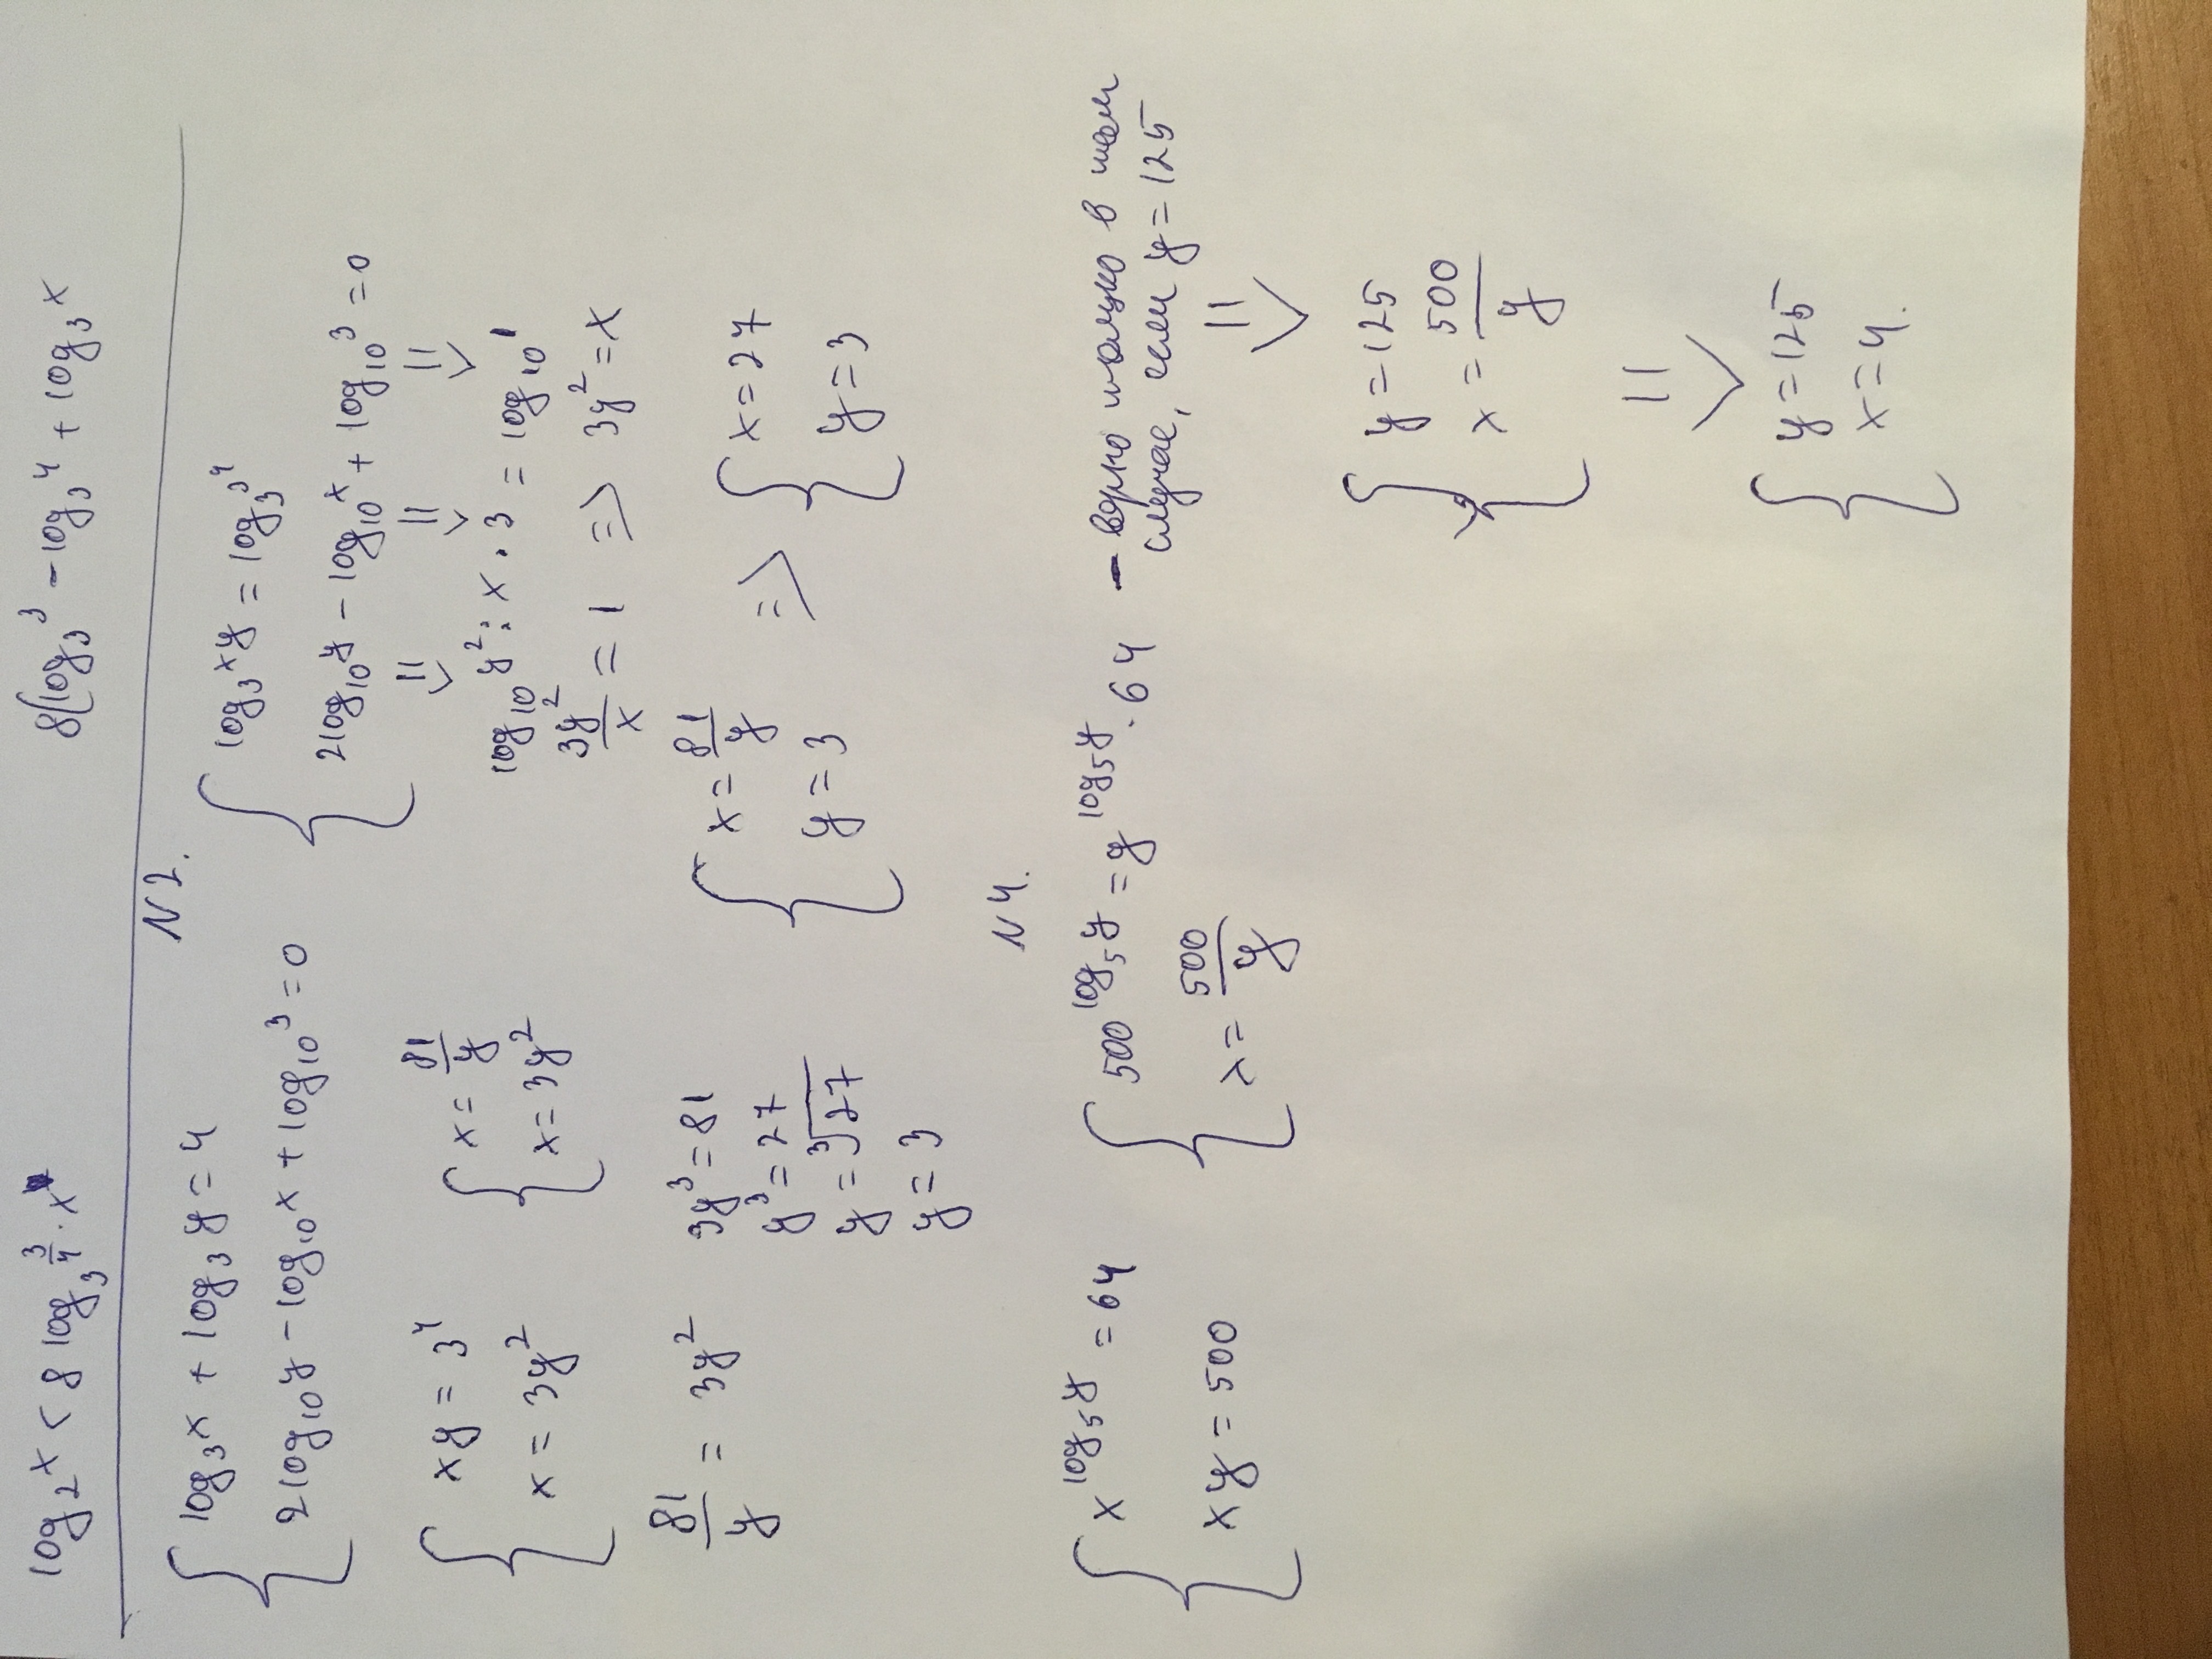 log₂x < 8 log₃ 3/4 · x
8(log₃3 - log₃4 + log₃x
N2.
{ log₃x + log₃y = 4
2log₁₀y - log₁₀x + log₁₀3 = 0
{ log₃xy = log₃3⁴
2log₁₀y - log₁₀x + log₁₀3 = 0
⇓ ⇓ ⇓
log₁₀ y² : x · 3 = log₁₀1
3y²/x = 1 => 3y² = x
{ xy = 3⁴
x = 3y²
{ x = 81/y
x = 3y²
81/y = 3y²
3y³ = 81
y³ = 27
y = ³√27
y = 3
{ x = 81/y
y = 3
=>
{ x = 27
y = 3
N4.
{ x^log₅y = 64
xy = 500
{ 500^log₅y = y^log₅y · 64
x = 500/y
- верно только в том
случае, если y = 125
⇓
{ y = 125
x = 500/y
⇓
{ y = 125
x = 4.